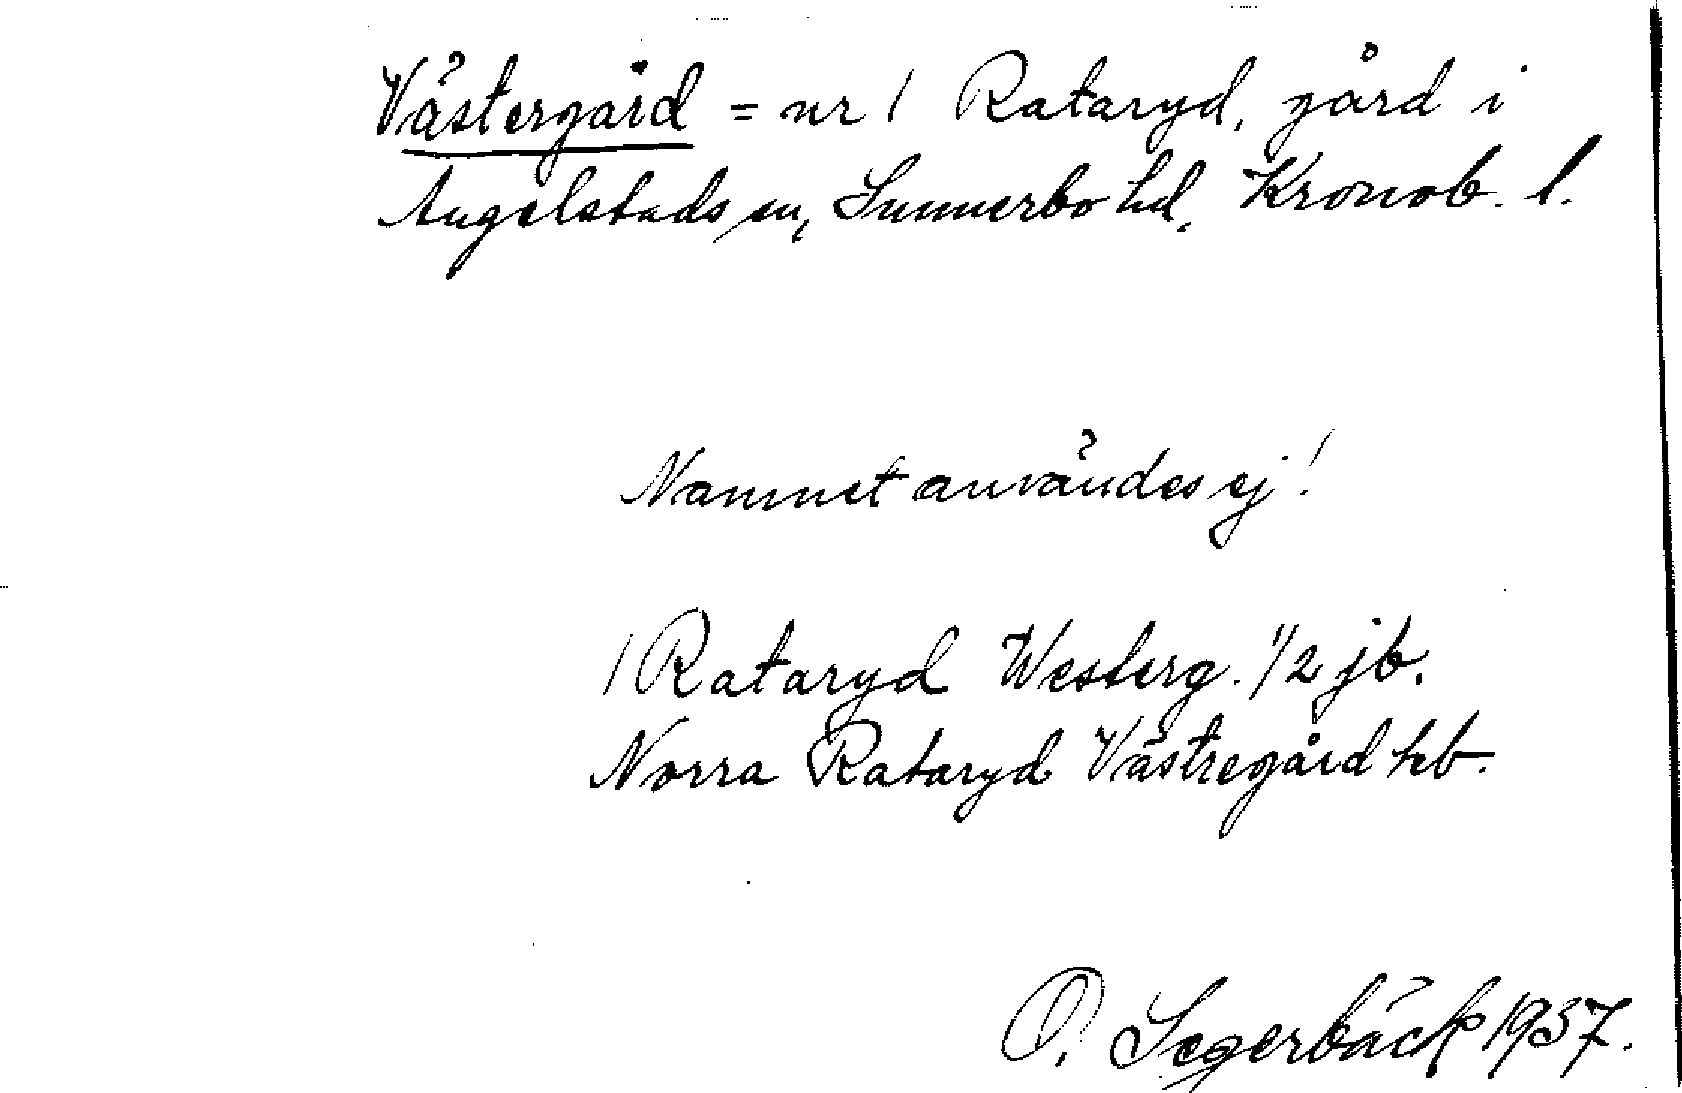 Västergård = nr 1 Rataryd, gård i
Angelstads sn, Sunnerbo hd, Kronob. l.
Namnet användes ej!
1 Rataryd Westerg. 1/2 jb.
Norra Rataryd Västregård hb.
O. Segerbäck 1937.